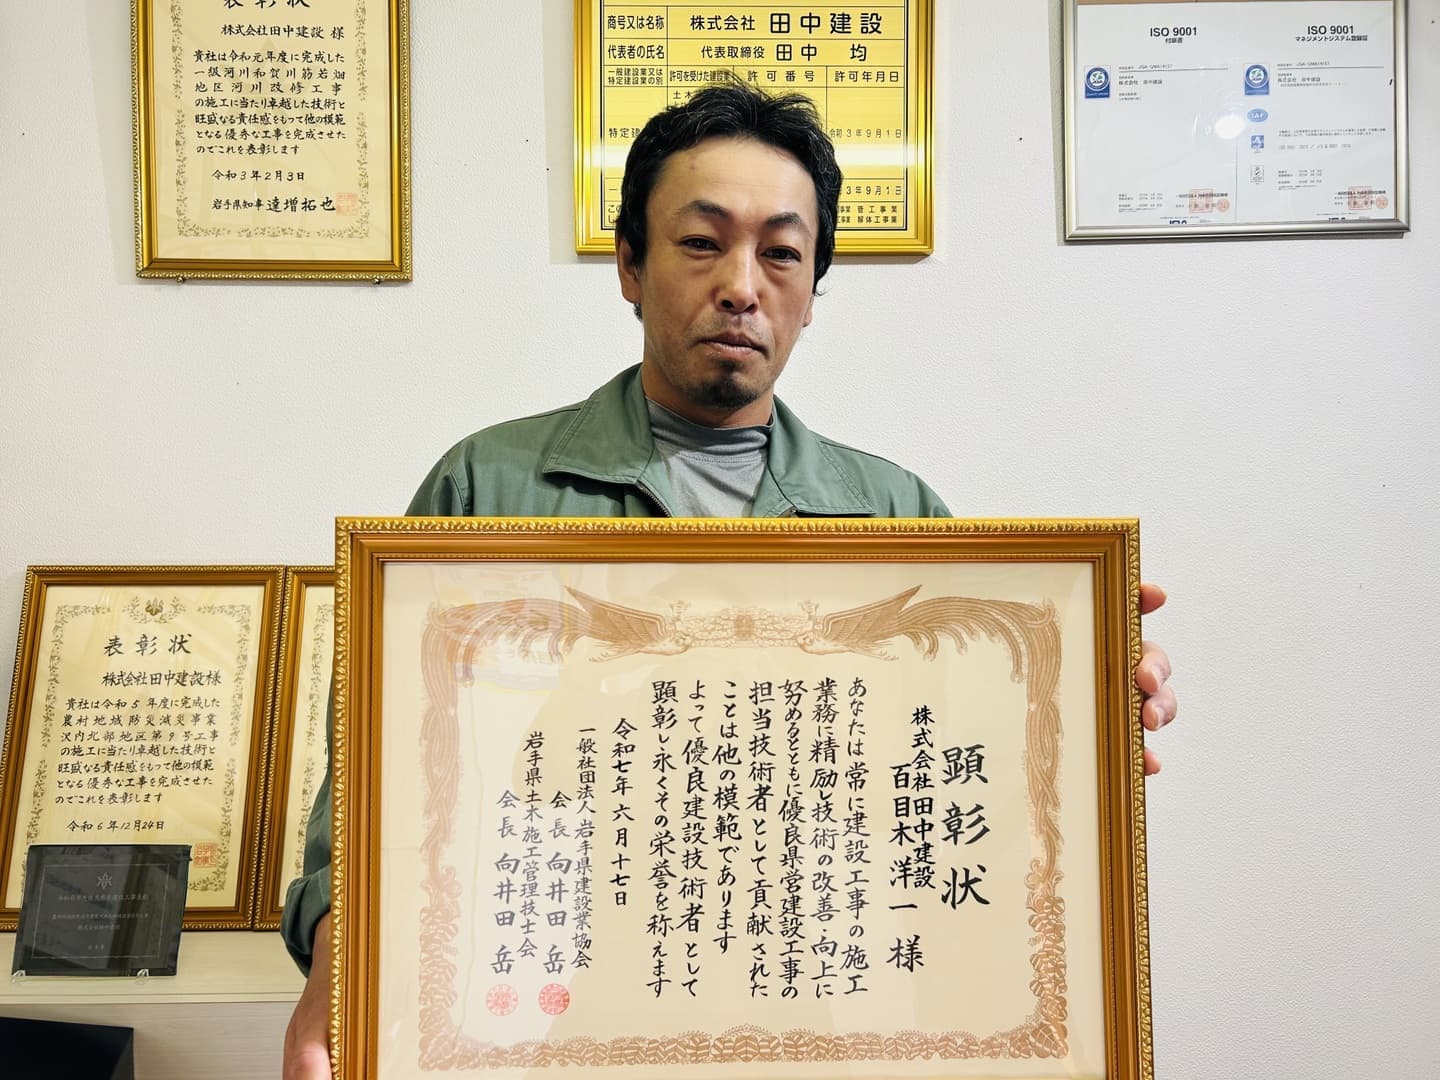 表彰状
株式会社田中建設 様
貴社は令和元年度に完成した
一級河川和賀川筋若畑
地区河川改修工事
の施工に当たり卓越した技術と
旺盛なる責任感をもって他の模範
となる優秀な工事を完成させた
のでこれを表彰します
令和3年2月3日
岩手県知事 達増拓也
商号又は名称 株式会社 田中建設
代表者の氏名 代表取締役 田中 均
一般建設業又は
特定建設業の別
許可を受けた建設業
許可番号
許可年月日
令和3年9月1日
3年9月1日
管工事業
解体工事業
ISO 9001
付属書
株式会社 田中建設
ISO 9001
マネジメントシステム登録証
株式会社 田中建設
表彰状
株式会社田中建設様
貴社は令和5年度に完成した
農村地域防災減災事業
沢内北部地区第9号工事
の施工に当たり卓越した技術と
旺盛なる責任感をもって他の模範
となる優秀な工事を完成させた
のでこれを表彰します
令和6年12月24日
顕彰状
株式会社田中建設
百目木洋一 様
あなたは常に建設工事の施工
業務に精励し技術の改善・向上に
努めるとともに優良県営建設工事の
担当技術者として貢献された
ことは他の模範であります
よって優良建設技術者として
顕彰し永くその栄誉を称えます
令和七年六月十七日
一般社団法人 岩手県建設業協会
会長 向井田 岳
岩手県土木施工管理技士会
会長 向井田 岳